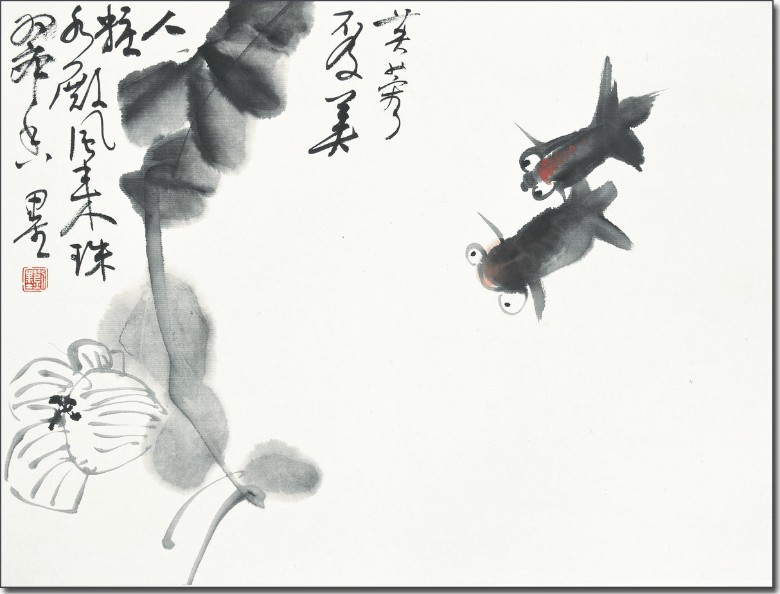 芙蓉
不及美
人
粧
水殿風來珠
翠香